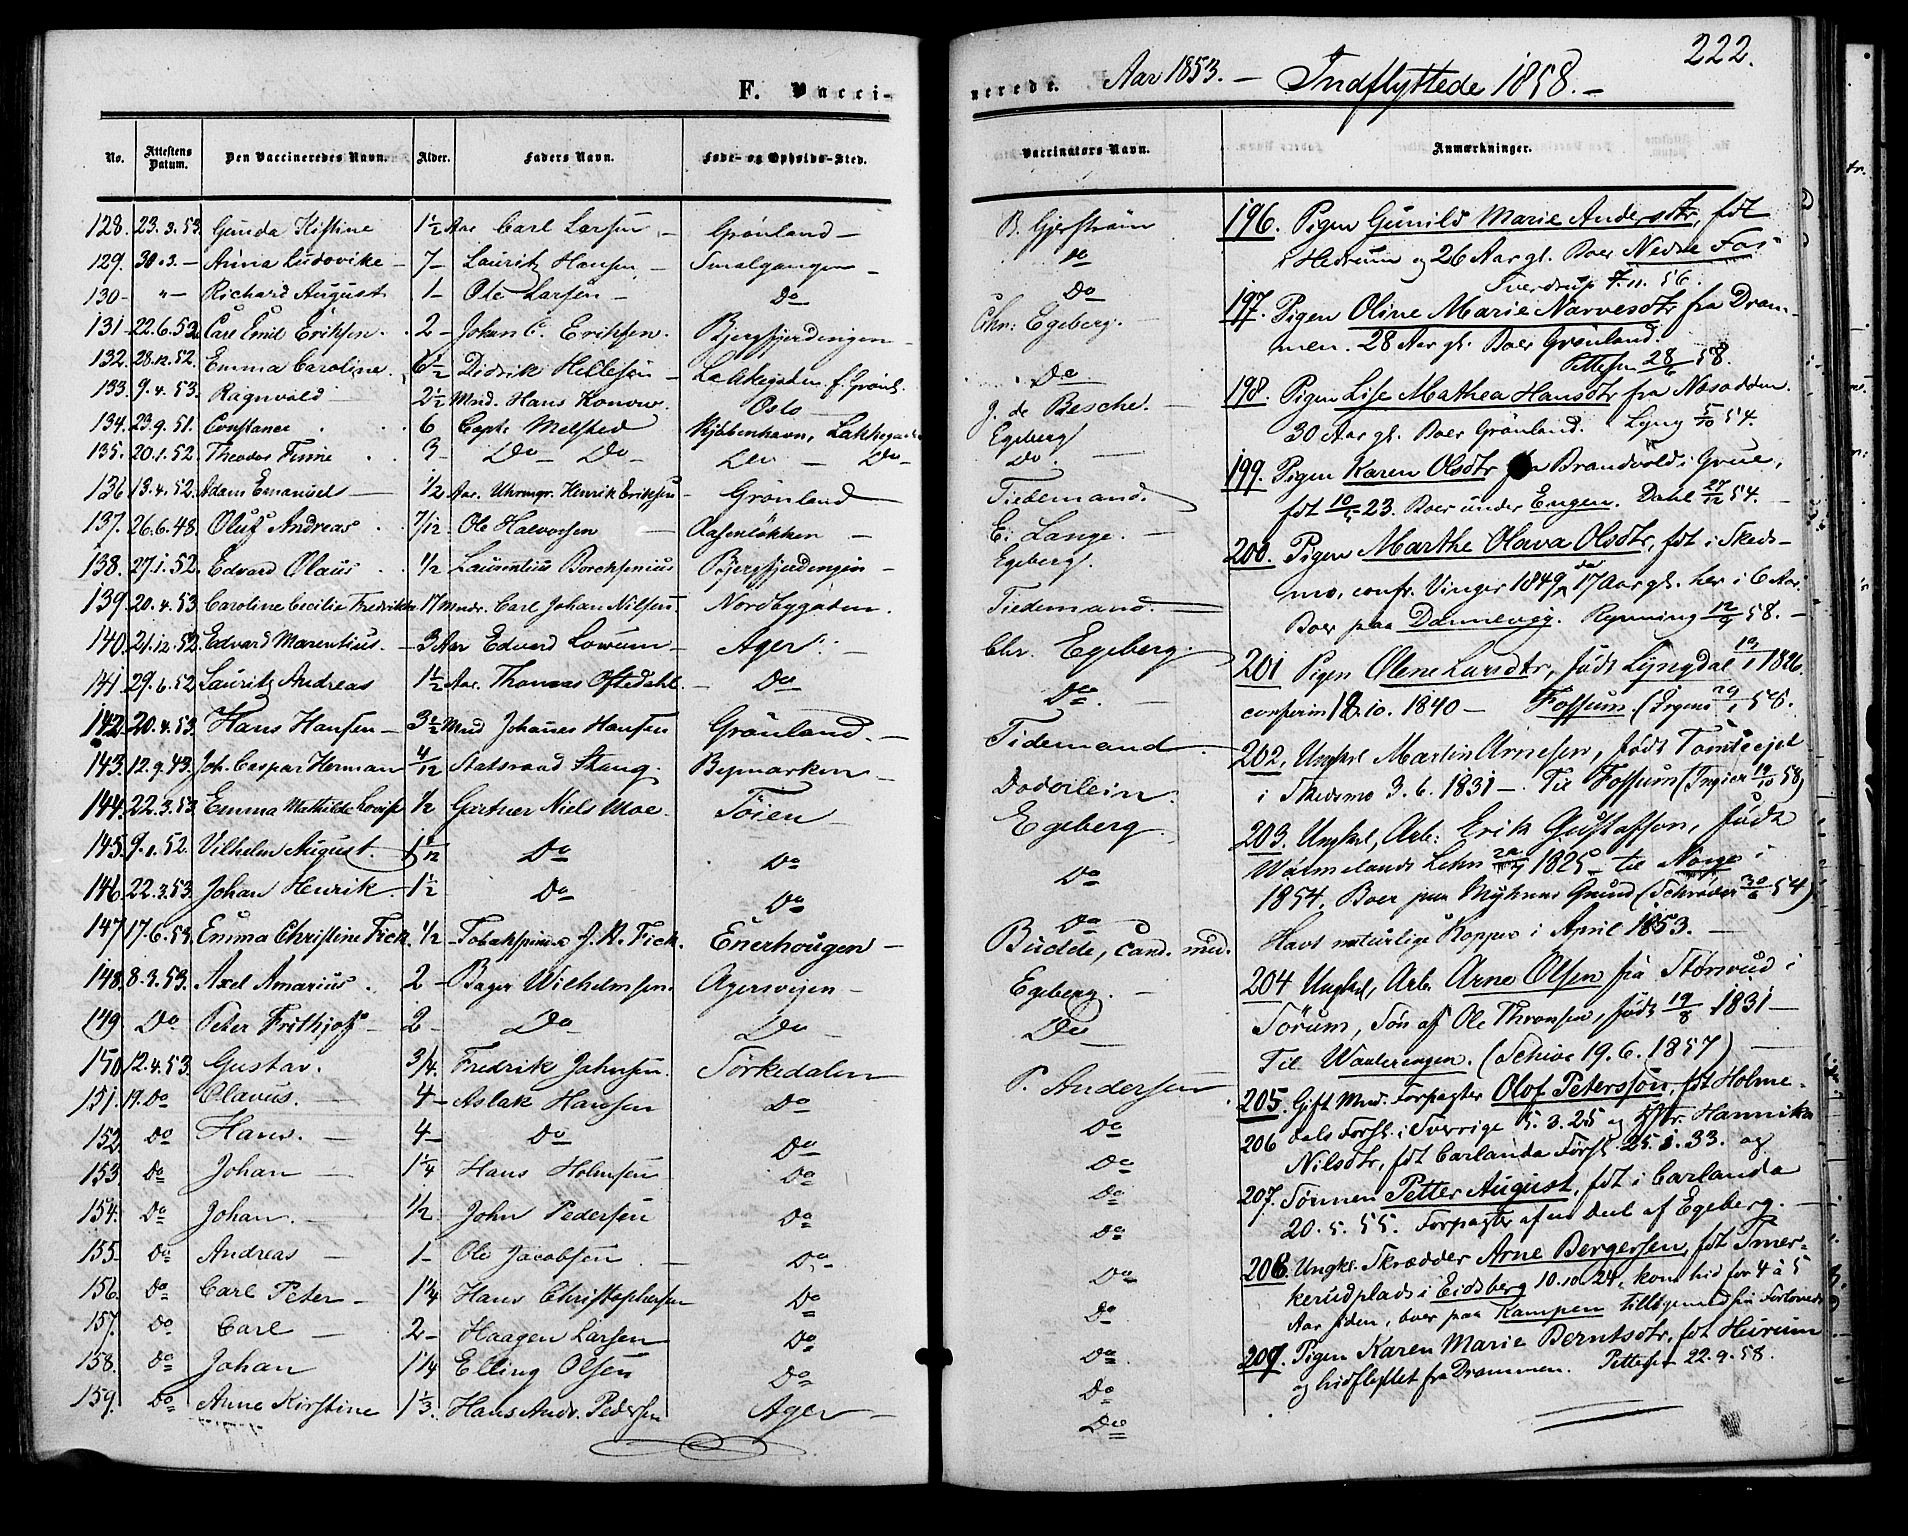 F. Vacci-
No. Attestens Datum. Den Vaccineredes Navn. Alder. Faders Navn. Føde- og Opholds-Sted.
128. 23.3.53. Gunda Kistine 1½ Aar Carl Larsen Grønland
129. 30.3.- Anna Ludovike 7 Lauritz Hansen Smalgangen
130 "- Richard August 1 Ole Larsen Do
131 22.6.52 Carl Emil Eriksen 2 Johan C. Eriksen Bjergfjerdingen
132. 28.12.52. Emma Caroline 6½ Didrik Hellesen Lakkegaden f. Grønl.
133. 9.4.53. Ragnvald 2½ Mnd. Hans Konow Oslo
134. 23.9.51. Constance 6 Capt. Melsted Kjöbenhavn, Lakkegaden
135. 20.1.52. Theodor Finne 3 Do Do Do Do
136 13.4.52. Adam Emanuel ½ Aar Uhrmgr. Henrik Eriksen Grønland
137. 26.6.48. Oluf Andreas 7/12 Ole Halvorsen Aasenløkken
138. 27.1.52. Edvard Olaus ½ Laurentius Borchsenius Bjergfjerdingen
139. 20.4.53 Caroline Cecilie Fredrikke 17 Mndr. Carl Johan Nilsen Nordbygaden
140. 21.12.52. Edvard Marentius 3 Aar Edvard Lowum Ager
141 29.6.52 Lauritz Andreas 1½ Aar. Thomas Oftedahl Do
142. 20.4.53. Hans Hansen 3½ Mnd Johanes Hansen Grønland
143. 12.9.43. Joh. Caspar Herman 4/12 Statsraad Stang Bymarken
144. 22.3.53 Emma Mathilde Lovise ½ Gartner Niels Moe Töien
145. 9.1.52. Vilhelm August Do Do
146 22.3.53. Johan Henrik 1½ Do Do
147 17.6.53. Emma Christine Fick ½ J.R. Fick Enerhougen
148. 8.3.53. Axel Amarius 2 Bager Wilhelmsen Agersveien
149 Do Peter Frithjof 2 Do Do
150 12.4.53 Gustav ¾ Fredrik Jahnsen Sørkedalen
151. 19. Do Olavus 4 Aslak Hansen Do
152 Do Hans 4 Do Do
153 Do Johan 1¼ Hans Holmsen Do
154. Do Johan ½ John Pedersen Do
155 Do Andreas 1 Ole Jacobsen Do
156. Do Carl Peter 1¼ Hans Christophersen Do
157. Do Carl 2 Haagen Larsen Do
158. Do Johan 1¼ Elling Olsen Do
159. Do Anne Kirstine 1⅓. Hans Andr. Pedersen Ager
nerede. Aar 1853. - Indflyttede 1858. - 222.
Vaccinators Navn. Anmærkninger.
B. Gjerstrøm
Do
Do
Chr: Egeberg.
Do
J. de Besche.
Egeberg
Do.
Tiedemand.
E. Lange.
Egeberg.
Tiedemand.
Chr. Egeberg.
Do
Tidemand
Doderlein.
Egeberg
Do
Do
Budde, cand. med.
Egeberg.
Do
P. Andersen
Do
Do
Do
Do
Do
Do
Do
Do
Do
196. Pigen Gunild Marie Andersdtr, fdt
i Hedrum og 26 Aar gl. Boer Nedre Fos
Sverdrup 7.11.56.
197. Pigen Oline Marie Narvesdtr fra Dram-
men. 28 Aar gl. Boer Grønland.
Pettersen 28/6 58.
198. Pigen Lise Mathea Hansdtr fra Næsodden
30 Aar gl. Boer Grønland. Lyng 5/10 54.
199. Pigen Karen Olsdtr fra Brandvold i Grue,
fdt 23. Boer under Engen. Dahl 27/12 54.
200. Pigen Marthe Olava Olsdtr, fdt i Skeds-
mo, confr. Vinger 1849, da 17 Aar gl. her i 6 Aar.
Boer paa Dannevig. Rynning 58.
201 Pigen Olene Larsdtr, født Lyngdal 1826
confirm 18.10.1840 - Fossum.
202. Ungkl Martin Arnesen, født
i Skedsmo 3.6.1831 - Til Fossum (Ingier 19/10 58)
203. Ungkl, Arb: Erik Gustafson, født
Wärmelands Lehn 1825 til Norge i
1854. Boer paa Myhrens Grund (Schrøder 54)
Havt naturlige Kopper i April 1853.
204 Ungkl, Arb. Arne Olsen fra i
Sørum, Søn af Ole Thronsen, født 19/8 1831 -
Til Waalerengen. (Schive 19.6.1857)
205. Gift Mnd. Forpagter Olof Petersson, fdt Holme-
206 dals Forsl. i Sverrige 5.3.25 og Hstr. Hannika
Nilsdtr, fdt Carlanda Førsl 25.1.33. og
207. Sönnen Petter August, fdt i Carlanda
20.5.55. Forpagter af en Deel af Egeberg.
208. Ungkl. Skrædder Arne Bergersen, fdt Smer-
kerudplads i Eidsberg 10.10.24, kom hid for 4 à 5
Aar siden, boer paa Kampen
209. Pigen Karen Marie Berntsdtr, fdt Hurum
og hidflyttet fra Drammen. Pettersen 22.9.58.